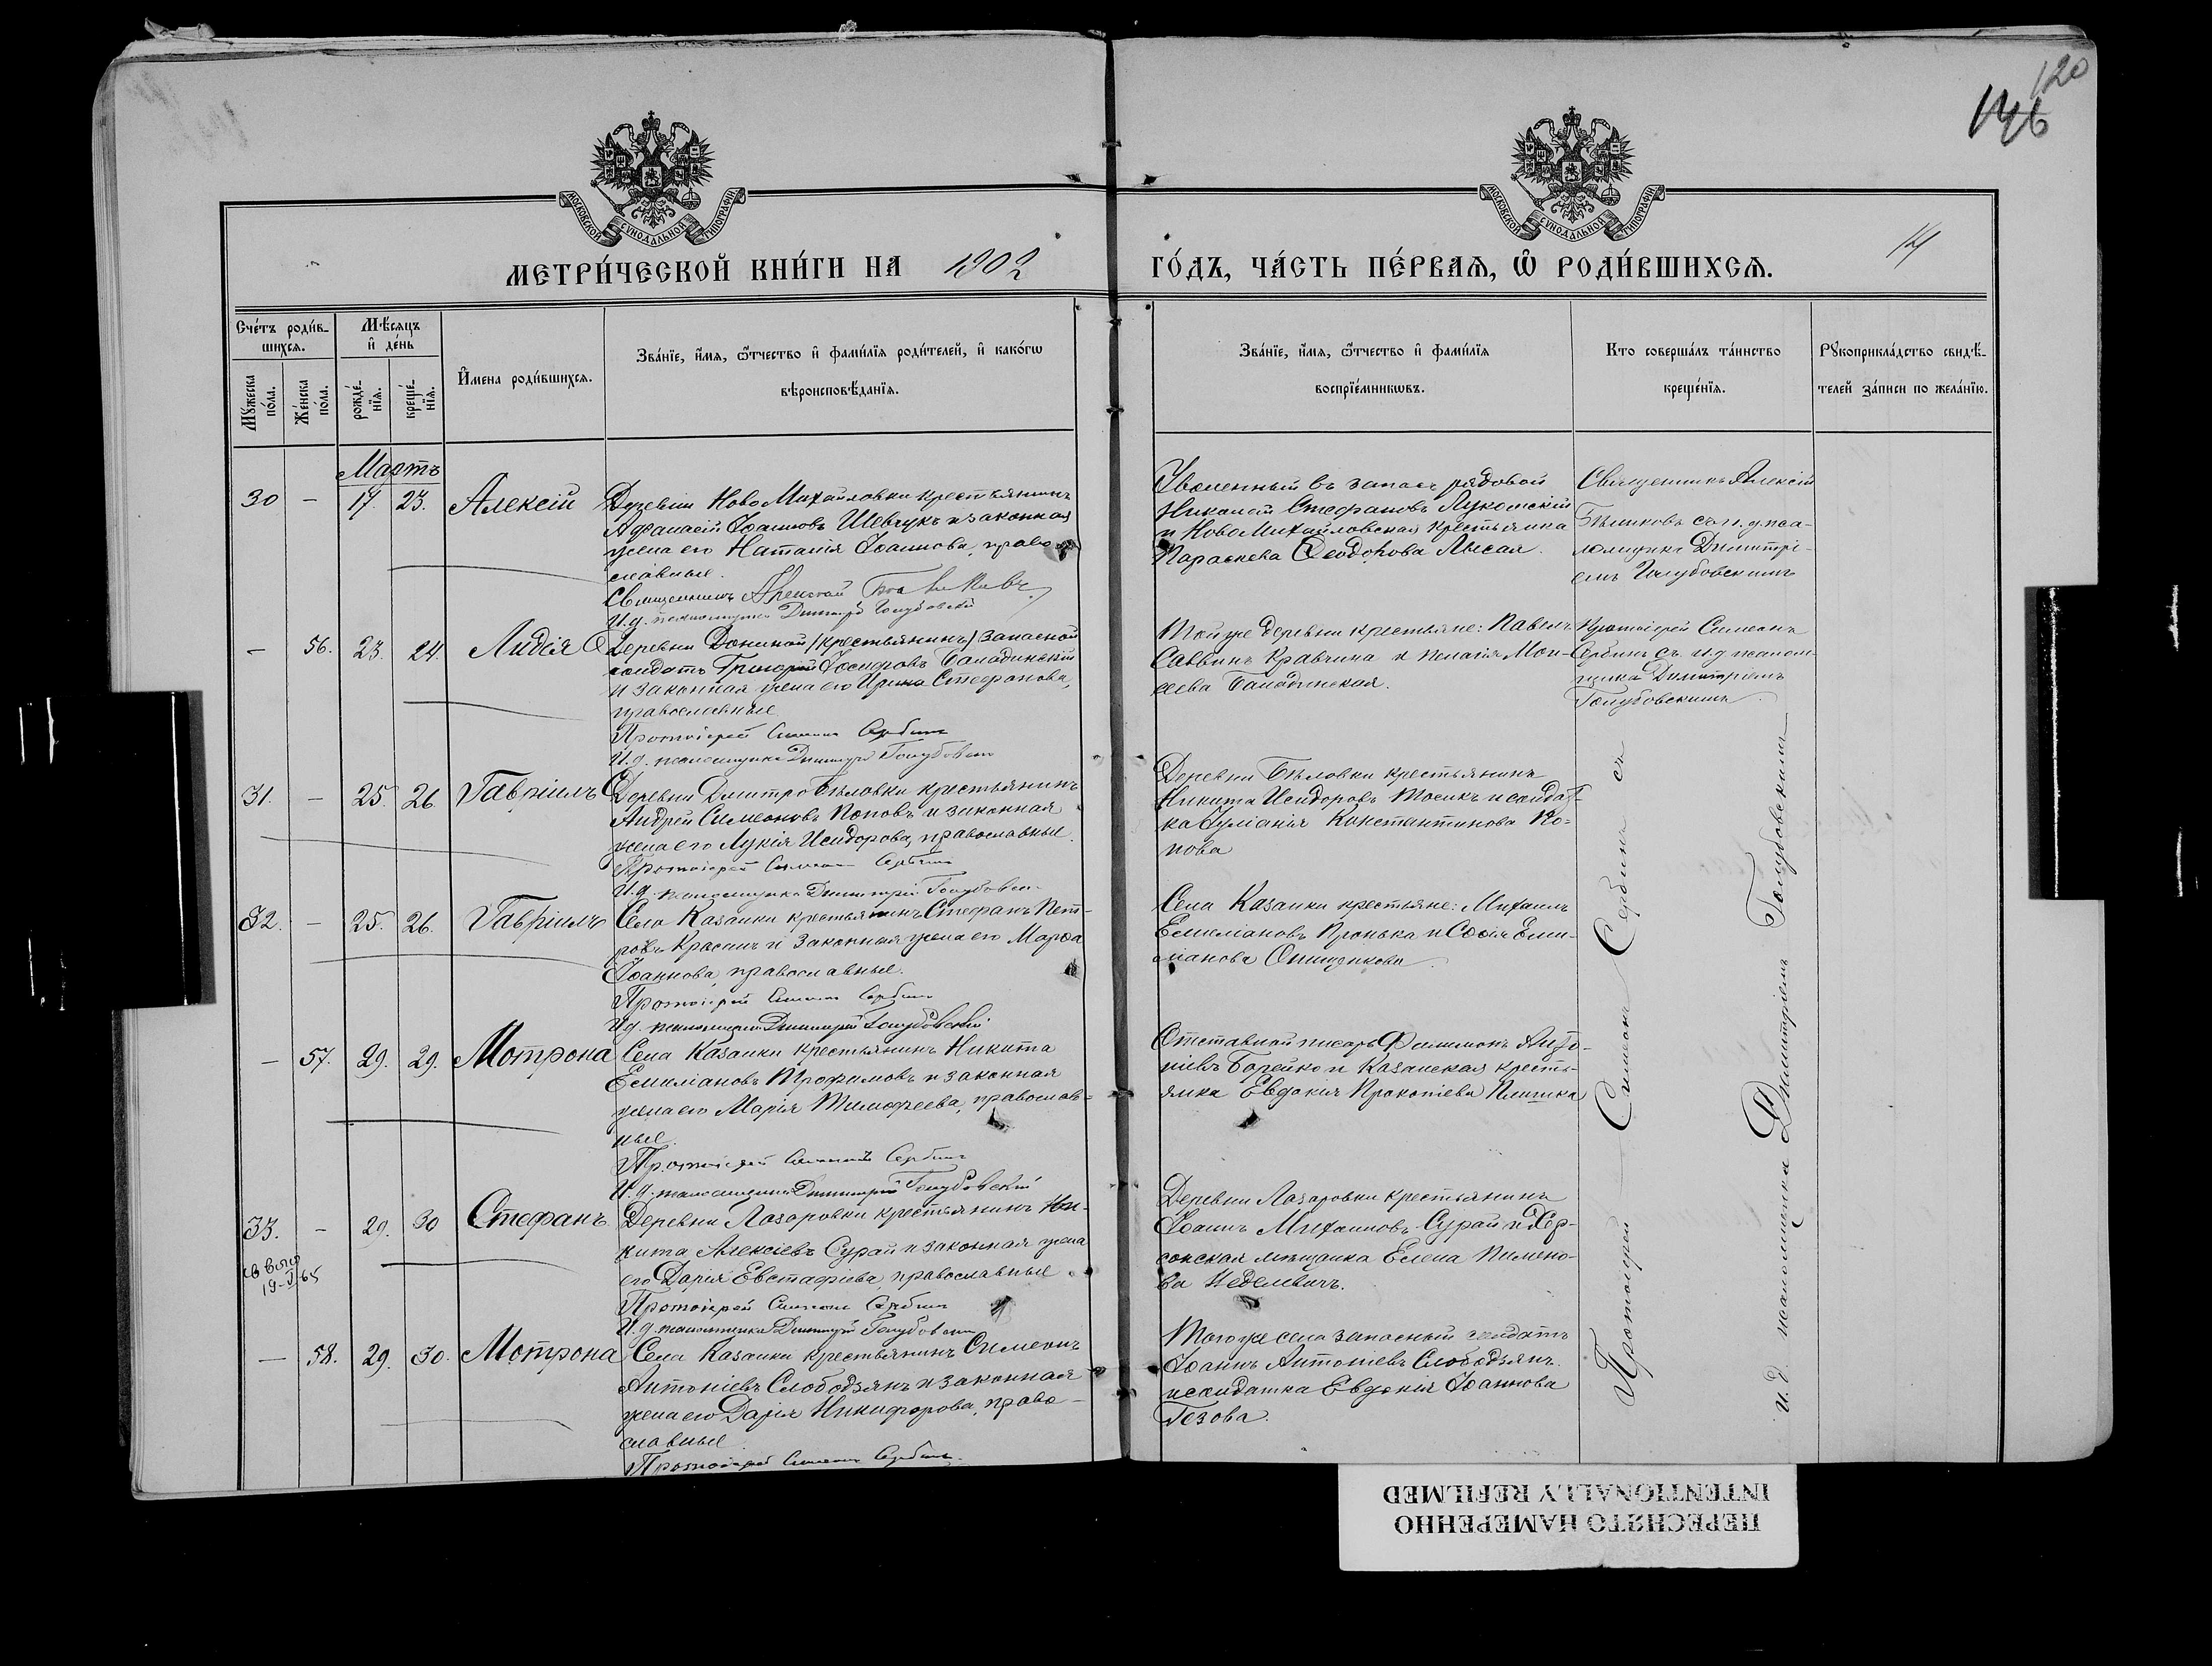 120
146
МОСКОВСКОЙ СУНОДАЛЬНОЙ ТИПОГРАФІИ
МОСКОВСКОЙ СУНОДАЛЬНОЙ ТИПОГРАФІИ
МЕТРИ́ЧЕСКОЙ КНИ́ГИ НА 1902
ГО́ДЪ, ЧА́СТЬ ПЕ́РВАЯ, Ѡ҆ РОДИ́ВШИХСЯ.
Сче́тъ роди́в-
шихся.
Мѣ́сяцъ
и҆ де́нь
Мꙋжеска
по́ла.
Же́нска
по́ла.
рожде́-
нїя.
креще́-
нїя.
И҆мена роди́вшихся.
Зва́нїе, и҆́мя, ѻ҆́тчество и҆ фами́лїя роди́телей, и҆ како́гѡ
вѣроисповѣ́данїя.
Зва́нїе, и҆́мя, ѻ҆́тчество и҆ фами́лїя
воспрїе́мникѡвъ.
Кто совершалъ та́инство
креще́нїя.
Рꙋкоприкла́дство свидѣ́-
телей за́писи по жела́нїю.
Мартъ
30 - 17. 23. Алексій
Деревни Ново Михайловки крестьянинъ
Афанасій Іоанновъ Шевчукъ и законная
жена его Наталія Іоаннова, право
славные.
Священникъ Алексій
И.д. псаломщика Димитрій Голубовскій
Уволенный въ запасъ рядовой
Николай Стефановъ Лукомскій
и НовоМихайловская крестьянка
Параскева Ѳеодорова Лысая.
Священникъ Алексій
съ и. д. пса-
ломщика Димитрі-
емъ Голубовскимъ
- 56. 23. 24. Лидія
Деревни Дониной (крестьянинъ) запасной
солдатъ Григорій Іосифовъ Баладинскій
и законная жена его Ирина Стефанова,
православные
Протоіерей Симеонъ Сербинъ
И.д. псаломщика Димитрій Голубовскій
Той же деревни крестьяне: Павелъ
Саввинъ Кравчина и Пелагія Мои-
сеева Баладинская.
Протоіерей Симеонъ
Сербинъ съ и.д псалом-
щика Димитріемъ
Голубовскимъ
31. - 25. 26. Гавріилъ
Деревни Дмитро Бѣловки крестьянинъ
Андрей Симеоновъ Поповъ и законная
жена его Лукія Исидорова, православные.
Протоіерей Симеонъ Сербинъ
И.д. псаломщика Димитрій Голубовскій
Деревни Бѣловки крестьянинъ
Никита Исидоровъ Мосикъ и солдат-
ка Іуліанія Константинова По-
пова
32. - 25. 26. Гавріилъ
Села Казанки крестьянинъ Стефанъ Пет-
ровъ Красинъ и законная жена его Марѳа
Іоаннова, православные.
Протоіерей Симеонъ Сербинъ
И.д. псаломщика Димитрій Голубовскій
Села Казанки крестьяне: Михаилъ
Емеліановъ Пронька и Софія Еми-
ліанова Онищенкова.
- 57. 29. 29. Мотрона
Села Казанки крестьянинъ Никита
Емиліановъ Трофимовъ и законная
жена его Марія Тимофеева, православ-
ные.
Протоіерей Симеонъ Сербинъ
И.д. псаломщика Димитрій Голубовскій
Отставной писарь Филимонъ Анто-
ніевъ Борейко и Казанская кресть-
янка Евдокія Прокопіева Плишка
33. - 29. 30 Стефанъ
19-V-65
Деревни Лазаровки крестьянинъ Ни-
кита Алексіевъ Сурай и законная жена
его Дарія Евстафіева, православные
Протоіерей Симеонъ Сербинъ
И.д. псаломщика Димитрій Голубовскій
Деревни Лазаровки крестьянинъ
Іоаннъ Михаиловъ Сурай и Хер-
сонская мѣщанка Елена Пимено-
ва Неделевичъ.
- 58. 29. 30. Мотрона
Села Казанки крестьянинъ Симеонъ
Антоніевъ Слободзянъ и законная
жена его Дарія Никифорова, право-
славные
Протоіерей Симеонъ Сербинъ.
Того же села запасный солдатъ
Іоаннъ Антоніевъ Слободзянъ
и солдатка Евдокія Іоаннова
Гезова.
Протоіерей Симеонъ Сербинъ съ
и. д. псаломщика Димитріемъ Голубовскимъ
ПЕРЕСНЯТО НАМЕРЕННО
INTENTIONALLY REFILMED